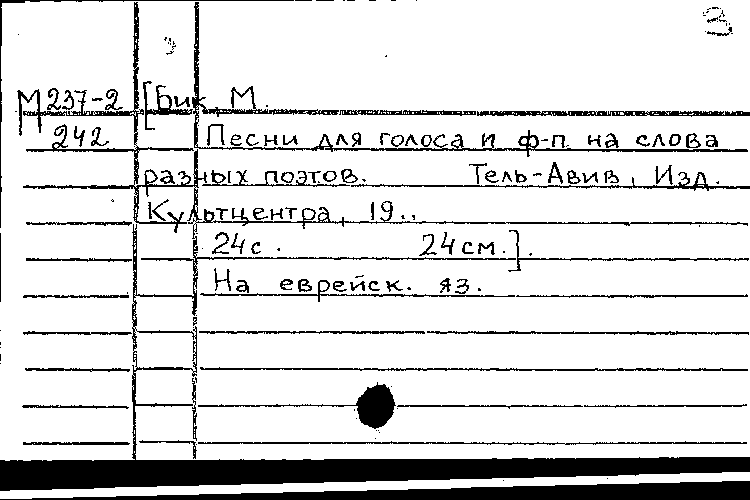 3
М 237-2 [Бик, М.
242 Песни для голоса и ф-п. на слова
разных поэтов. Тель-Авив, Изд.
Культцентра, 19..
24с. 24см.].
На еврейск. яз.